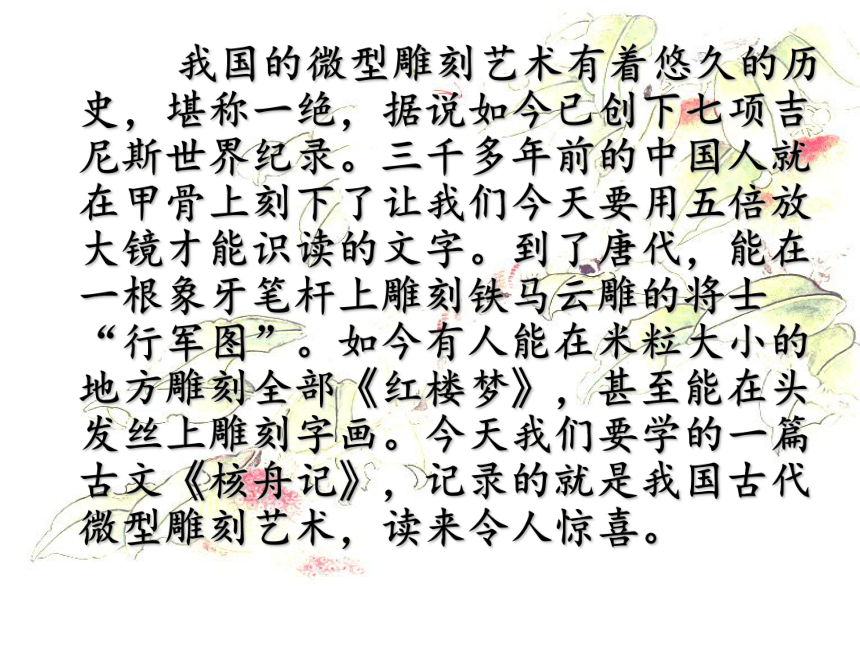 我国的微型雕刻艺术有着悠久的历
史，堪称一绝，据说如今已创下七项吉
尼斯世界纪录。三千多年前的中国人就
在甲骨上刻下了让我们今天要用五倍放
大镜才能识读的文字。到了唐代，能在
一根象牙笔杆上雕刻铁马云雕的将士
“行军图”。如今有人能在米粒大小的
地方雕刻全部《红楼梦》，甚至能在头
发丝上雕刻字画。今天我们要学的一篇
古文《核舟记》，记录的就是我国古代
微型雕刻艺术，读来令人惊喜。